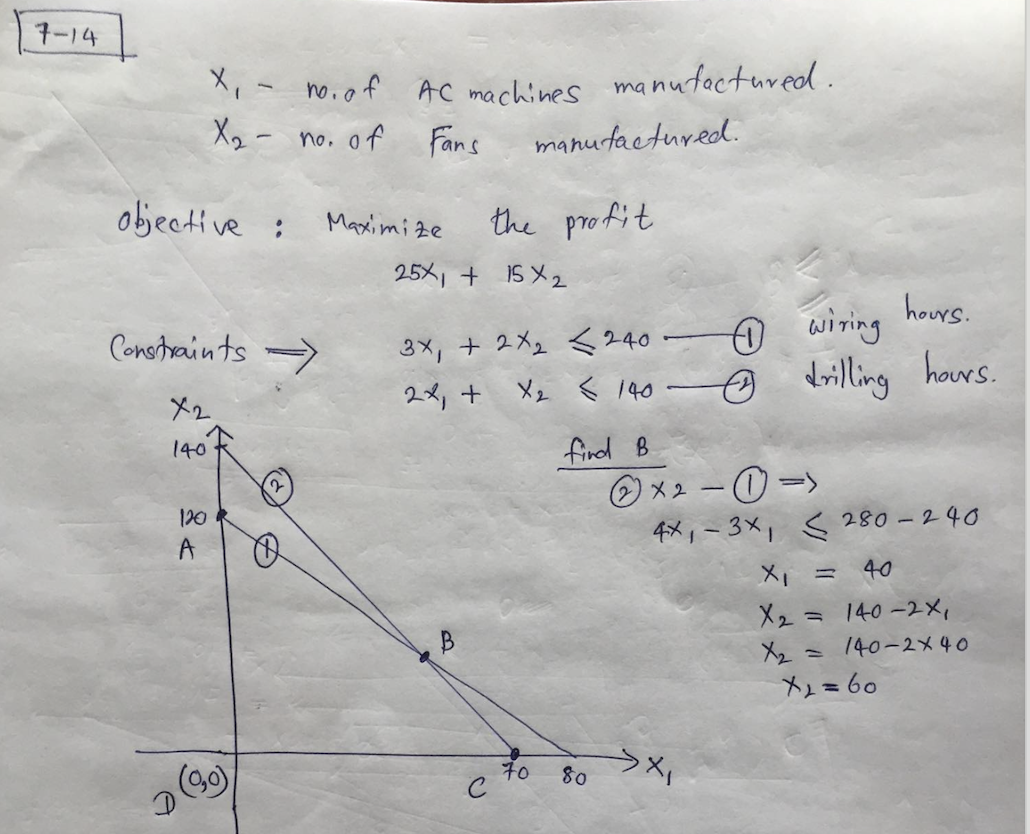 7-14
X₁ - no. of AC machines manufactured.
X₂ - no. of Fans manufactured.
Objective : Maximize the profit
25X₁ + 15X₂
Constraints ⇒ 3X₁ + 2X₂ ≤ 240 — ① wiring hours.
2X₁ + X₂ ≤ 140 — ② drilling hours.
X₂
140
②
120
A
①
B
C
70
80
X₁
D (0,0)
find B
② x 2 - ① ⇒
4X₁ - 3X₁ ≤ 280 - 240
X₁ = 40
X₂ = 140 - 2X₁
X₂ = 140 - 2 x 40
X₂ = 60